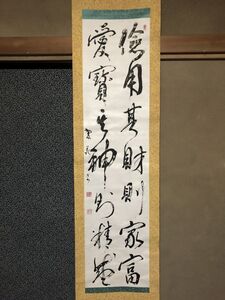 儉用其財則家富
愛寶其神則精盛